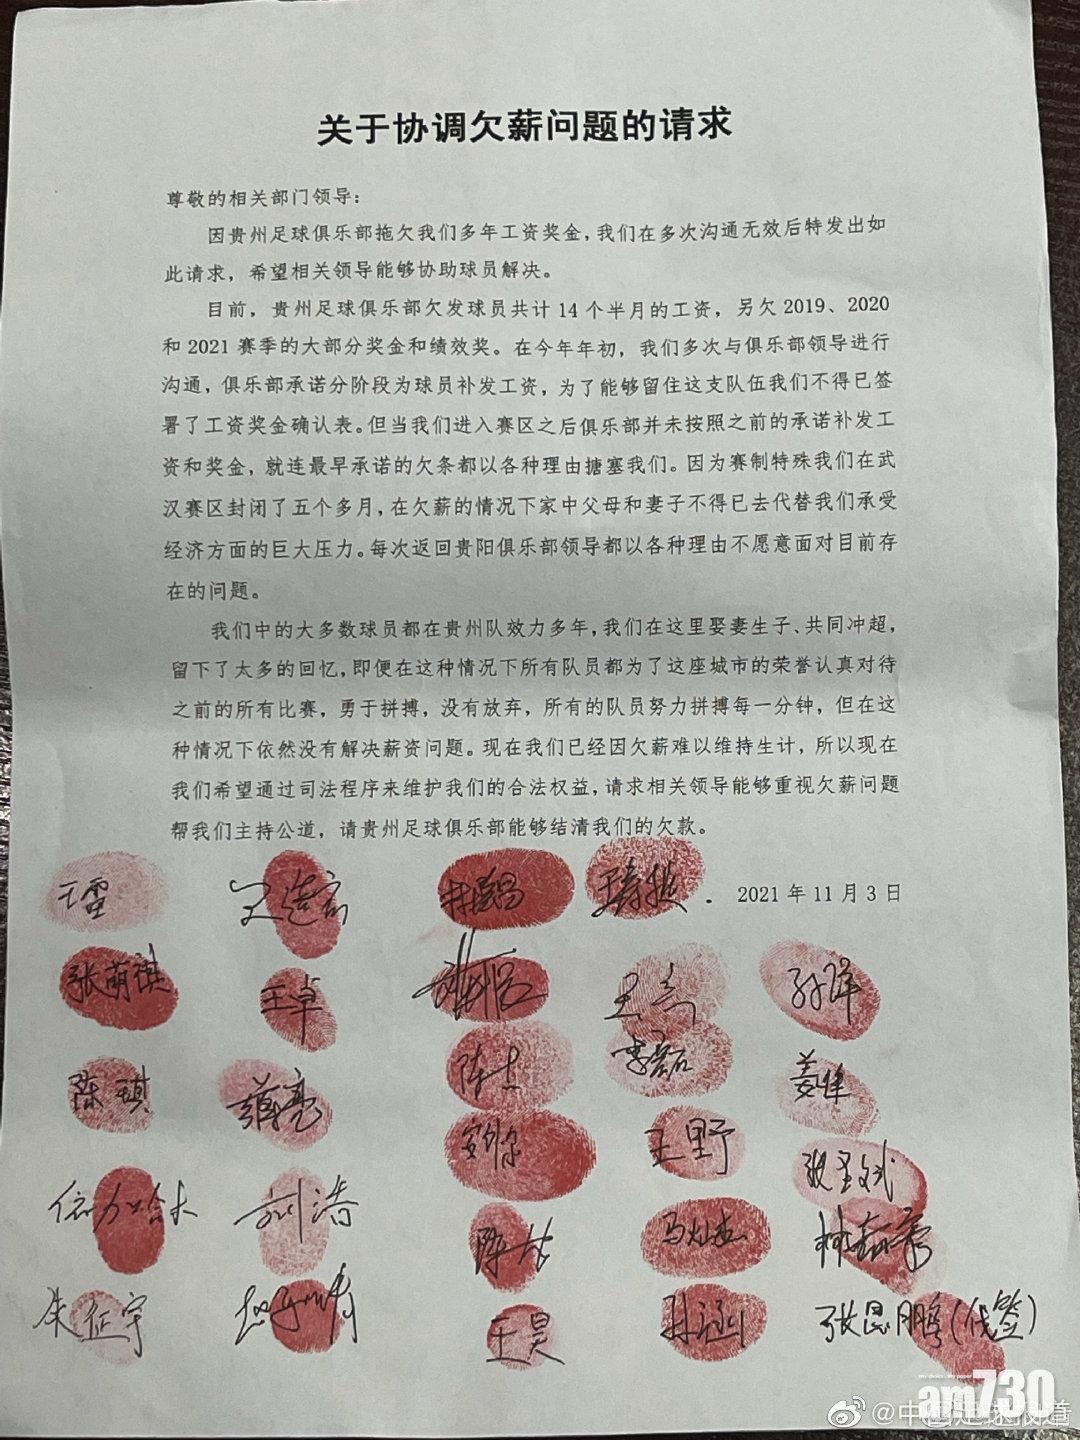 关于协调欠薪问题的请求
尊敬的相关部门领导：
因贵州足球俱乐部拖欠我们多年工资奖金，我们在多次沟通无效后特发出如
此请求，希望相关领导能够协助球员解决。
目前，贵州足球俱乐部欠发球员共计 14 个半月的工资，另欠 2019、2020
和 2021 赛季的大部分奖金和绩效奖。在今年年初，我们多次与俱乐部领导进行
沟通，俱乐部承诺分阶段为球员补发工资，为了能够留住这支队伍我们不得已签
署了工资奖金确认表。但当我们进入赛区之后俱乐部并未按照之前的承诺补发工
资和奖金，就连最早承诺的欠条都以各种理由搪塞我们。因为赛制特殊我们在武
汉赛区封闭了五个多月，在欠薪的情况下家中父母和妻子不得已去代替我们承受
经济方面的巨大压力。每次返回贵阳俱乐部领导都以各种理由不愿意面对目前存
在的问题。
我们中的大多数球员都在贵州队效力多年，我们在这里娶妻生子、共同冲超，
留下了太多的回忆，即便在这种情况下所有队员都为了这座城市的荣誉认真对待
之前的所有比赛，勇于拼搏，没有放弃，所有的队员努力拼搏每一分钟，但在这
种情况下依然没有解决薪资问题。现在我们已经因欠薪难以维持生计，所以现在
我们希望通过司法程序来维护我们的合法权益，请求相关领导能够重视欠薪问题
帮我们主持公道，请贵州足球俱乐部能够结清我们的欠款。
2021 年 11 月 3 日
王雷
张萌琪 王卓
陈琪 孙洋
陈杰 李磊 姜峰
王野
刘浩 马灿杰
朱征宇 王昊 孙涵 张思鹏(代签)
am730
@中国足球报道